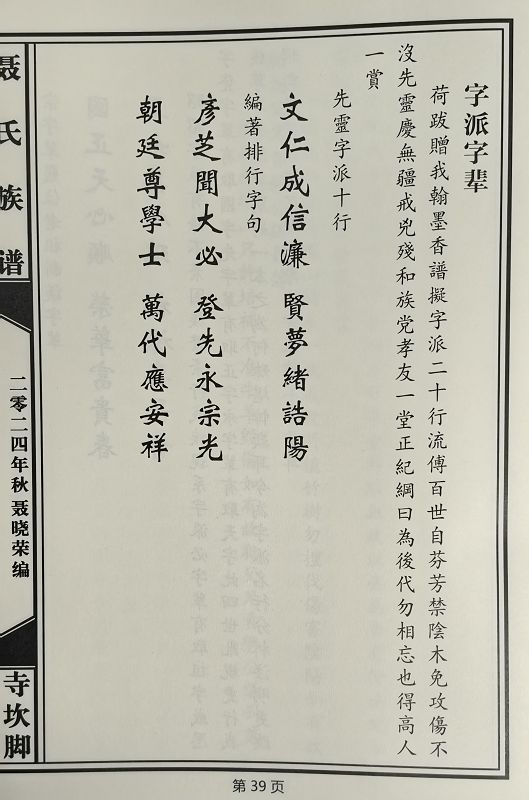 字派字辈
荷跋贈我翰墨香譜擬字派二十行流傳百世自芬芳禁陰木免攻傷不
沒先靈慶無疆戒兇殘和族党孝友一堂正紀綱曰為後代勿相忘也得高人
一賞
先靈字派十行
文仁成信濂 賢夢緒誥陽
編著排行字句
彥芝聞大必 登先永宗光
朝廷尊學士 萬代應安祥
聂氏族谱
二零二四年秋聂晓荣编
寺坎脚
第 39 页